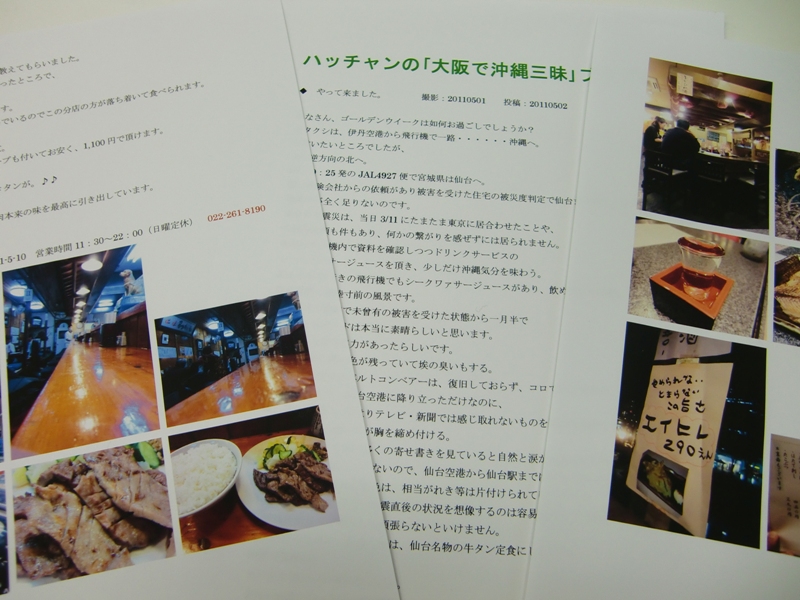 教えてもらいました。
ったところで、
す。
でいるのでこの分店の方が落ち着いて食べられます。
プも付いてお安く、1,100 円で頂けます。
タンが。♪♪
本来の味を最高に引き出しています。
1-5-10 営業時間 11：30～22：00（日曜定休） 022-261-8190
ハッチャンの「大阪で沖縄三昧」ブ
◆ やって来ました。 撮影：20110501 投稿：20110502
なさん、ゴールデンウイークは如何お過ごしでしょうか？
タクシは、伊丹空港から飛行機で一路・・・・・・沖縄へ。
いたいところでしたが、
逆方向の北へ。
：25 発の JAL4927 便で宮城県は仙台へ。
険会社からの依頼があり被害を受けた住宅の被災度判定で仙台
全く足りないのです。
震災は、当日 3/11 にたまたま東京に居合わせたことや、
も件もあり、何かの繋がりを感ぜずには居られません。
機内で資料を確認しつつドリンクサービスの
サージュースを頂き、少しだけ沖縄気分を味わう。
きの飛行機でもシークワァサージュースがあり、飲め
陸寸前の風景です。
で未曾有の被害を受けた状態から一月半で
ドは本当に素晴らしいと思います。
力があったらしいです。
色が残っていて埃の臭いもする。
ベルトコンベアーは、復旧しておらず、コロ
台空港に降り立っただけなのに、
りテレビ・新聞では感じ取れないものを
が胸を締め付ける。
多くの寄せ書きを見ていると自然と涙が
ないので、仙台空港から仙台駅まで
は、相当がれき等は片付けられて
震直後の状況を想像するのは容易
頑張らないといけません。
は、仙台名物の牛タン定食に
酒
やめられない‥
とまらない
この旨さ
エイヒレ
290えん